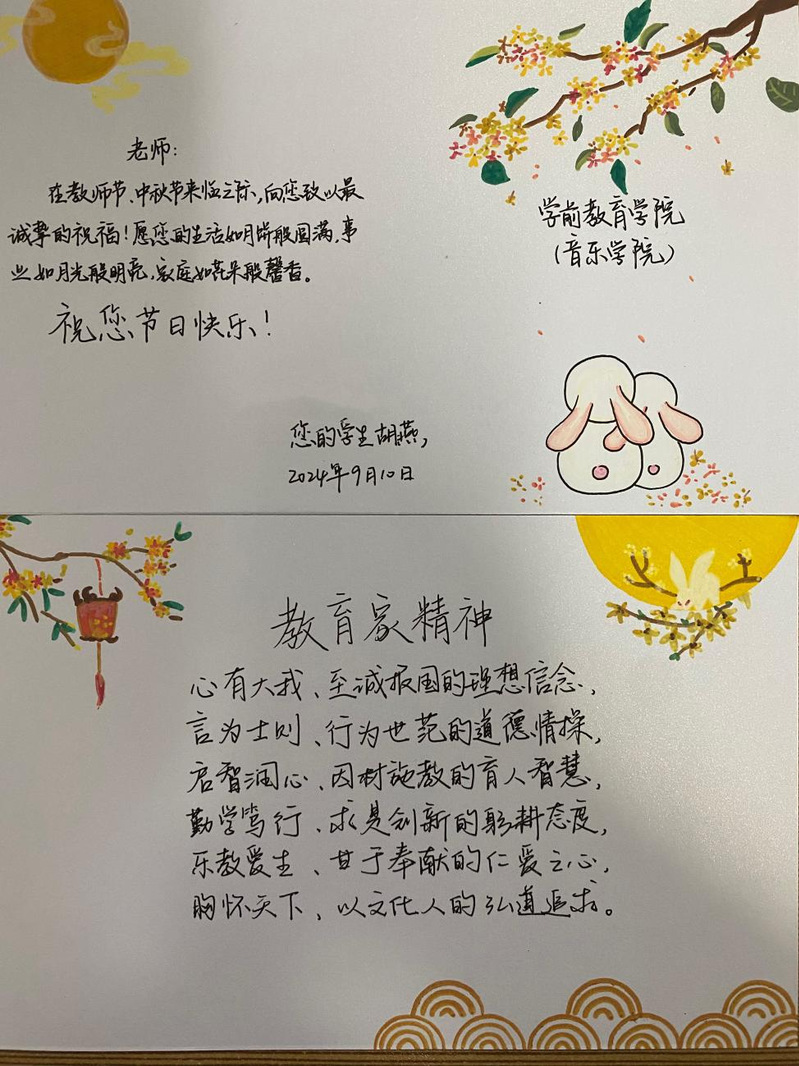 老师:
在教师节、中秋节来临之际,向您致以最
诚挚的祝福!愿您的生活如月饼般圆满,事
业如月光般明亮,家庭如花朵般馨香。
祝您节日快乐!
您的学生胡燕,
2024年9月10日
学前教育学院
(音乐学院)
教育家精神
心有大我、至诚报国的理想信念,
言为士则、行为世范的道德情操,
启智润心、因材施教的育人智慧,
勤学笃行、求是创新的躬耕态度,
乐教爱生、甘于奉献的仁爱之心,
胸怀天下、以文化人的弘道追求。